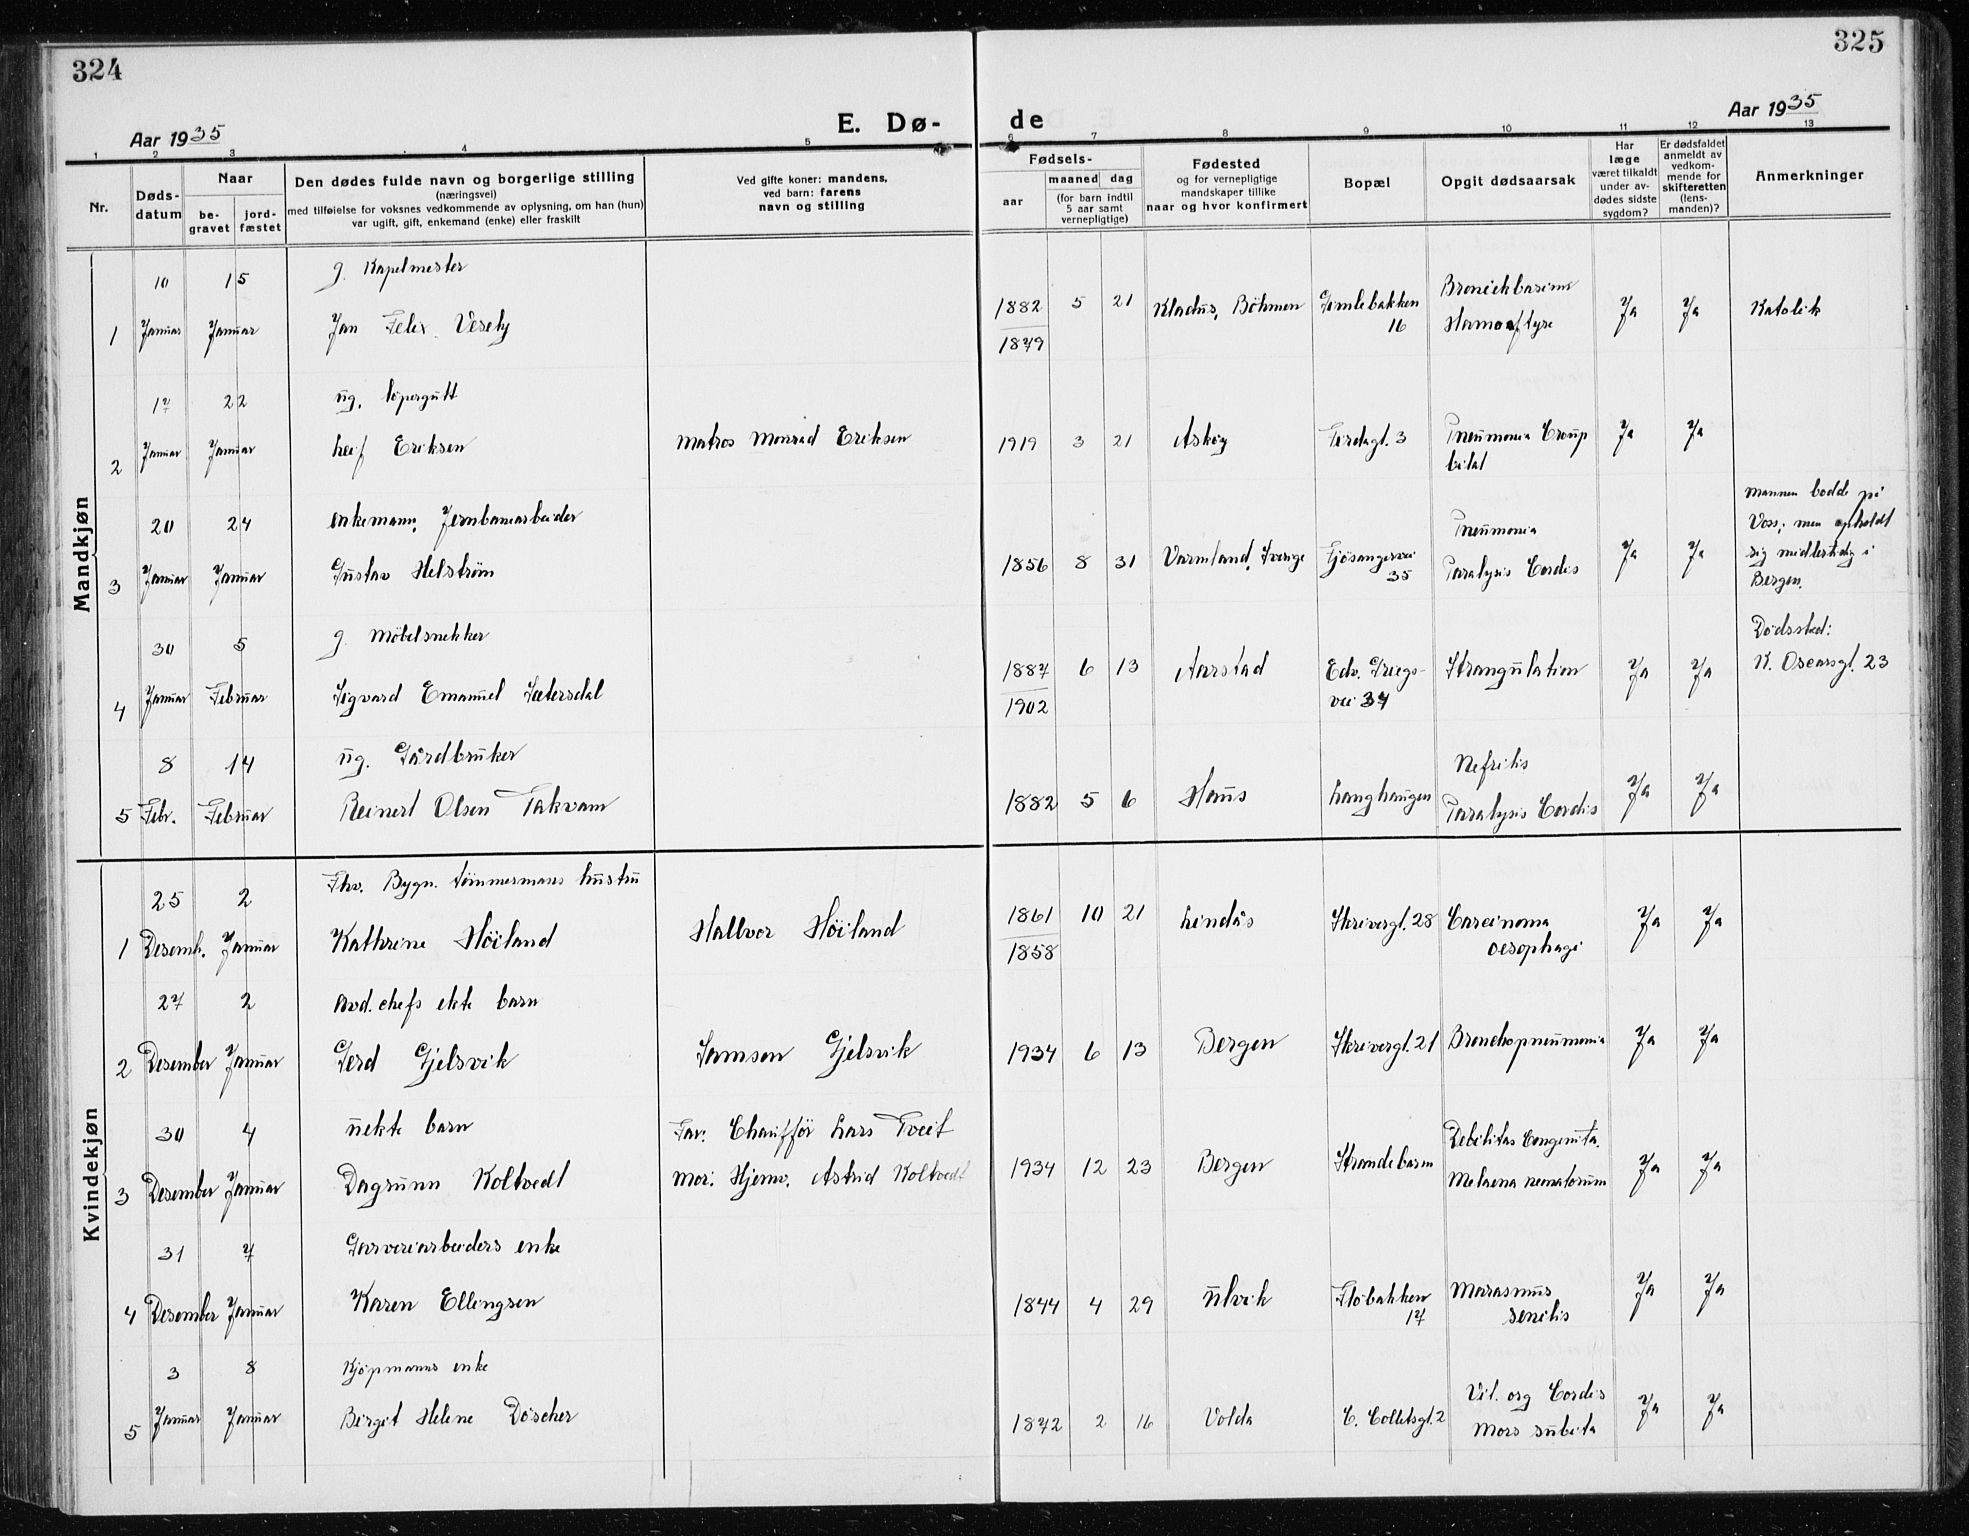 324
325
Aar 1935
E. Dø-
de
Aar 1935
1 2 3 4 5 6 7 8 9 10 11 12 13
Nr.
Døds-
datum
Naar
be-
gravet
jord-
fæstet
Den dødes fulde navn og borgerlige stilling
(næringsvei)
med tilføielse for voksnes vedkommende av oplysning, om han (hun)
var ugift, gift, enkemand (enke) eller fraskilt
Ved gifte koner: mandens,
ved barn: farens
navn og stilling
Fødsels-
aar
maaned dag
(for barn indtil
5 aar samt
vernepligtige)
Fødested
og for vernepligtige
mandskaper tillike
naar og hvor konfirmert
Bopæl
Opgit dødsaarsak
Har
læge
været tilkaldt
under av-
dødes sidste
sygdom?
Er dødsfaldet
anmeldt av
vedkom-
mende for
skifteretten
(lens-
manden)?
Anmerkninger
Mandkjøn
10 15 g. Kapelmester
1 Januar Januar Jan Felix Vesely
1882 5 21 Kladus, Böhmen Gimlebakken
16
1879
Ja Ja Katolik
17 22 ug. løpergutt
2 Januar Januar Leif Eriksen Matros Monrad Eriksen
1919 3 21 Askøy Fordegt. 3 Pneumonia Croup
bilat
Ja Ja
20 24 enkemann, Jernbanearbeider
3 Januar Januar Gustav Helstrøm
1856 8 31 Varmland, Sverige Fjøsangervei
35
Pneumonia
Paralysis Cordis
Ja Ja
Mannen bodde på
Voss; men opholdt
sig midlertidig i
Bergen.
30 5 g. Møbelsnekker
4 Januar Februar Sigvard Emanuel Sætersdal
1887 6 13 Aarstad Edv. Griegs-
vei 34
1902
Strangulation Ja Ja
Dødssted:
K. Oscarsgt. 23
8 14 ug. Gårdbruker
5 Febr. Februar Reinert Olsen Takvam
1882 5 6 Haus Langhaugen
Nefritis
Paralysis Cordis
Ja Ja
Kvindekjøn
25 2 Fhv. Bygn. tømmermans hustru
1 Desemb. Januar Kathrine Høiland Hallvor Høiland
1861 10 21 Lindås Skrivergt. 28 Carcinoma
oesophagi
1858
Ja Ja
27 2 Avd. chefs ekte barn
2 Desember Januar Gerd Gjelsvik Samson Gjelsvik
1934 6 13 Bergen Skrivergt. 21 Bronchopneumonia Ja Ja
30 4 uekte barn Far: Chauffør Lars Tveit
3 Desember Januar Dagrunn Koltvedt Mor: Hjemv. Astrid Koltvedt
1934 12 23 Bergen Strandebarm
Debilitas Congenita.
Melaena neonatorum
Ja Ja
31 7 Garveriarbeiders enke
4 Desember Januar Karen Ellingsen
1844 4 29 Ulvik Fløbakken
17
Marasmus
senilis
Ja Ja
3 8 Kjøpmanns enke
5 Januar Januar Birgit Helene Döscher
1872 2 16 Volda C. Colletsgt. 2
Vit. org Cordis
Mors subita
Ja Ja